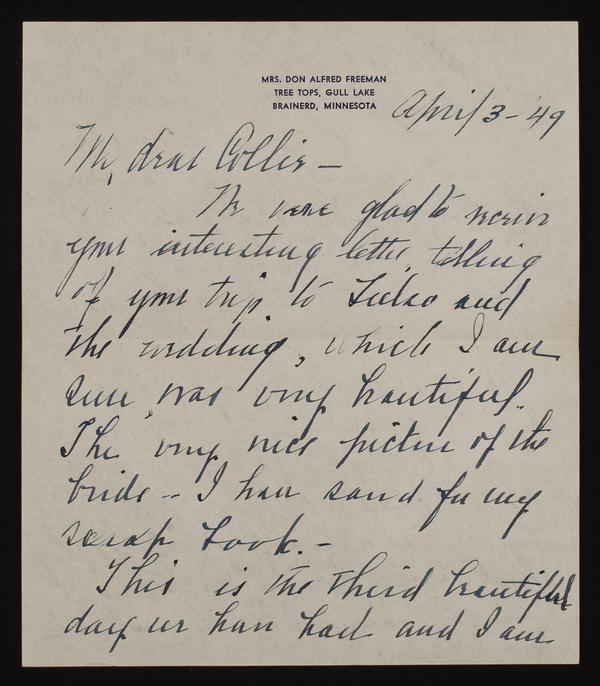 MRS. DON ALFRED FREEMAN
TREE TOPS, GULL LAKE
BRAINERD, MINNESOTA
April 3-'49
My dear Collie —
We were glad to receive
your interesting letter, telling
of your trip to Tulsa and
the wedding, which I am
sure, was very beautiful.
The very nice picture of the
bride -- I have saved for my
scrap book. -
This is the third beautiful
day we have had and I am